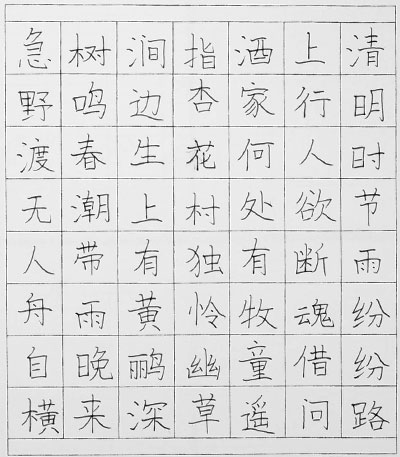 清明时节雨纷纷路
上行人欲断魂借问
酒家何处有牧童遥
指杏花村独怜幽草
涧边生上有黄鹂深
树鸣春潮带雨晚来
急野渡无人舟自横